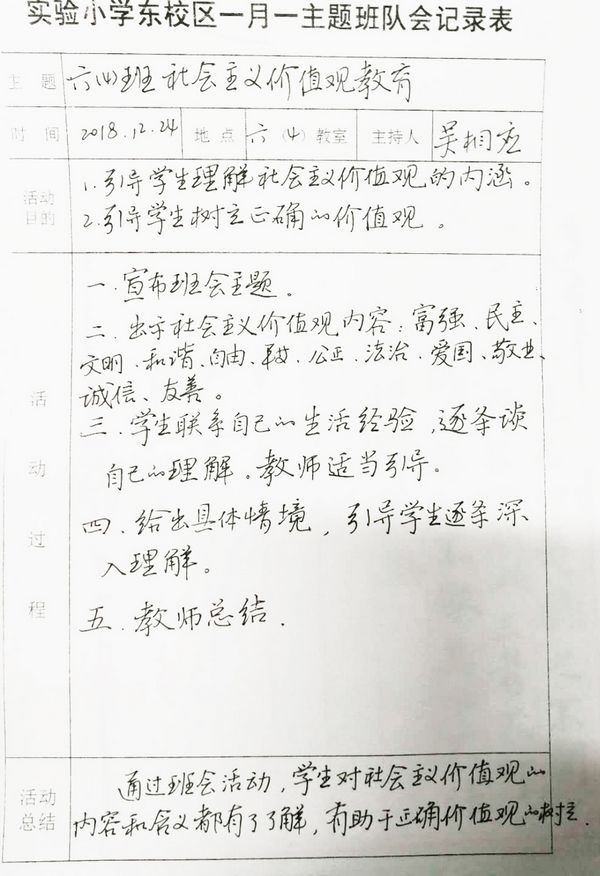 实验小学东校区一月一主题班队会记录表
主题 六(4)班社会主义价值观教育
时间 2018.12.24 地点 六(4)教室 主持人 吴相应
活动目的
1.引导学生理解社会主义价值观的内涵。
2.引导学生树立正确的价值观。
活动过程
一.宣布班会主题。
二.出示社会主义价值观内容:富强、民主、
文明、和谐、自由、平等、公正、法治、爱国、敬业、
诚信、友善。
三.学生联系自己的生活经验,逐条谈
自己的理解。教师适当引导。
四.给出具体情境,引导学生逐条深
入理解。
五.教师总结.
活动总结
通过班会活动,学生对社会主义价值观的
内容和含义都有了了解,有助于正确价值观的树立.